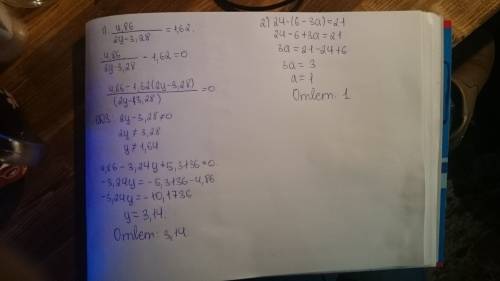 1). 4,86 / 2y-3,28 = 1,62.
4,86 / 2y-3,28 - 1,62=0
4,86-1,62(2y-3,28) / (2y-3,28) =0
ОДЗ: 2y-3,28≠0
2y ≠ 3,28
y ≠ 1,64
4,86-3,24y+5,3136=0
-3,24y=-5,3136-4,86
-3,24y=-10,1736
y=3,14.
Ответ: 3,14
2) 24-(6-3a)=21
24-6+3a=21
3a=21-24+6
3a=3
a=1
Ответ: 1